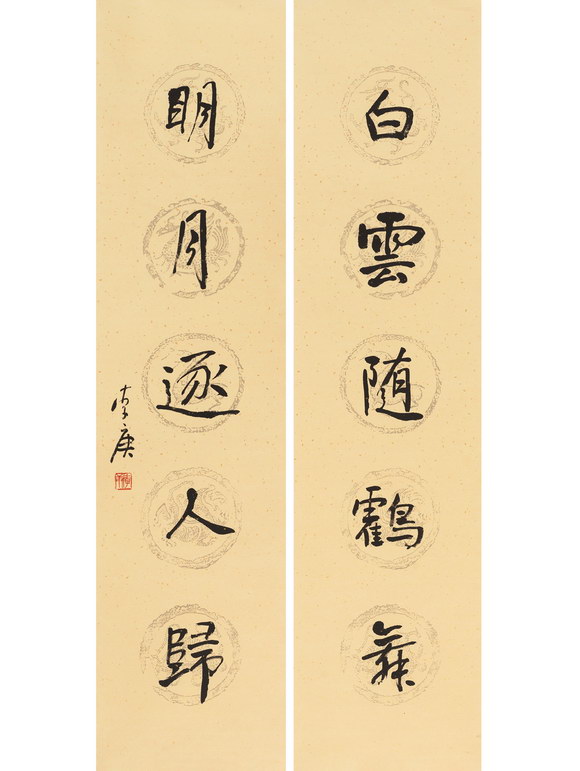 白雲随鸖舞
明月逐人歸
李庚